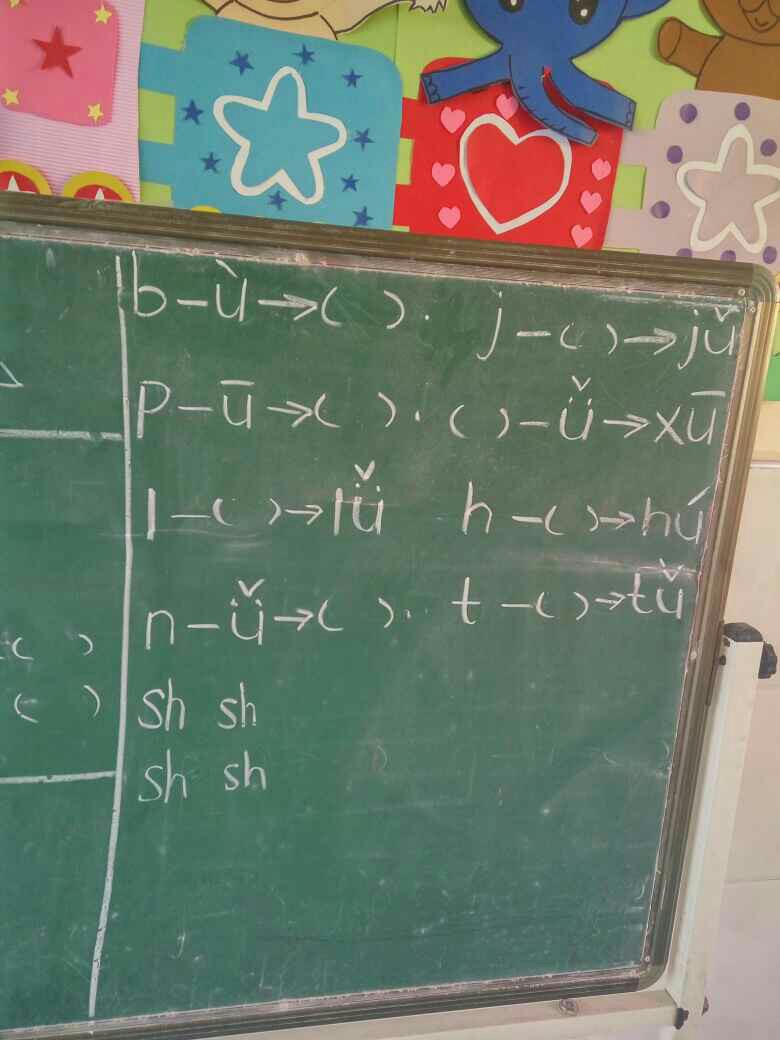 b-ù→( ). j-( )→jǔ
p-ū→( ). ( )-ǚ→xū
l-( )→lǚ h-( )→hú
n-ǚ→( ). t-( )→tǔ
( )
( ) sh sh
sh sh